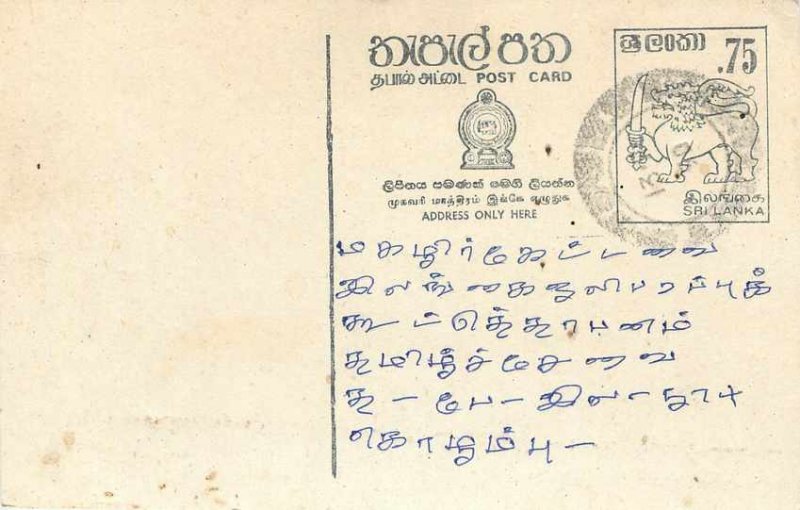 තැපැල් පත
தபால் அட்டை POST CARD
ලිපිනය පමණක් මෙහි ලියන්න
முகவரி மாத்திரம் இங்கே எழுதுக
ADDRESS ONLY HERE
ශ්‍රී ලංකා
.75
இலங்கை
SRI LANKA
13
மகளிர்கேட்டவை
இலங்கைஒலிபரப்புக்
கூட்டுத்தாபனம்
தமிழ்ச்சேவை
த - பே - இல - 574
கொழும்பு -